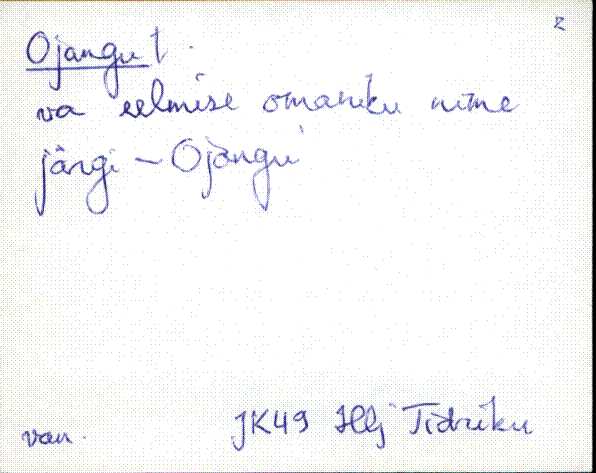 2
Ojangu l
va eelmise omaniku nime
järgi – Ojangu
van. JK49 Hlj Tidriku